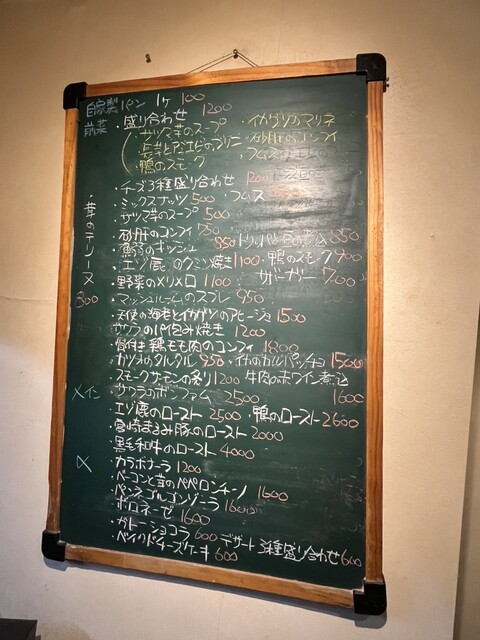 自家製パン 1ケ 100
前菜 ・盛り合わせ 1200
・サツマ芋のスープ ・イカゲソのマリネ
・長芋と桜エビのブリニ ・砂肝のコンフィ
・鴨のスモーク ・フムス
・チーズ3種盛り合わせ 1200
・ミックスナッツ 500 ・フムス
・サツマ芋のスープ 500
・砂肝のコンフィ 750
・のキッシュ 850 トリッパと 850
・エゾ鹿のクミン焼き 1100 ・鴨のスモーク 900
・野菜のメリメロ 1100 ザーサー 700
・茸のテリーヌ 800
・マッシュルームのスフレ 950
・天使の海老とイカゲソのアヒージョ 1500
・サワラのパイ包み焼き 1200
・骨付き鶏モモ肉のコンフィ 1800
・カツオのタルタル 950 ・イカのカルパッチョ 1500
・スモークサーモンの炙り 1200 牛肉の赤ワイン煮込 1600
メイン ・サワラのボンファム 2500
・エゾ鹿のロースト 2500 ・鴨のロースト 2600
・宮崎まるみ豚のロースト 2000
・黒毛和牛のロースト 4000
・カラボナーラ 1200
・ベーコンと茸のペペロンチーノ 1600
・ペンネゴルゴンゾーラ 1600
・ボロネーゼ 1600
・ガトーショコラ 600 デザート 3種盛り合わせ 600
・ベイクドチーズケーキ 600